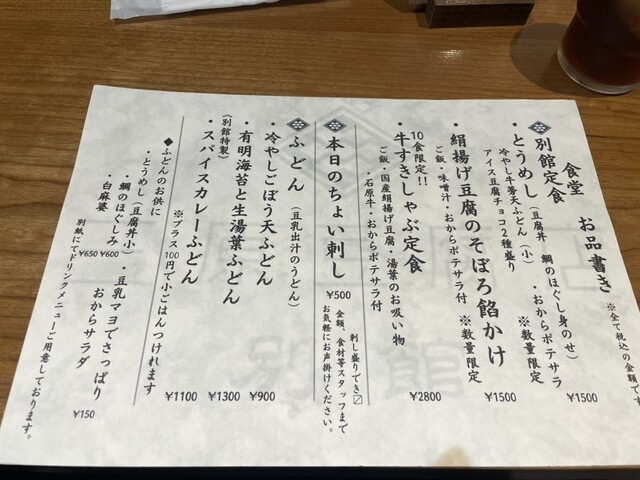 食堂 お品書き ※全て税込の金額です
別館定食
・とうめし(豆腐丼 鯛のほぐし身のせ)・おからポテサラ
冷やし牛蒡天ふどん(小)
アイス豆腐チョコ2種盛り ※数量限定 ¥1500
・絹揚げ豆腐のそぼろ餡かけ
ご飯・味噌汁・おからポテサラ付 ※数量限定 ¥1500
10食限定!!
・牛すきしゃぶ定食
ご飯・国産絹揚げ豆腐・湯葉のお吸い物
・石原牛・おからポテサラ付 ¥2800
本日のちょい刺し ¥500
刺し盛りでき〼
金額、食材等スタッフまで
お気軽にお声掛けください。
ふどん(豆乳出汁のうどん)
・冷やしごぼう天ふどん ¥900
・有明海苔と生湯葉ふどん ¥1300
(別館特製)
・スパイスカレーふどん ¥1100
※プラス100円で小ごはんつけれます
◆ふどんのお供に
・とうめし(豆腐丼小) ¥600
・鯛のほぐしみ ¥650
・白麻婆
・豆乳マヨでさっぱり
おからサラダ ¥150
別紙にてドリンクメニューご用意しております。